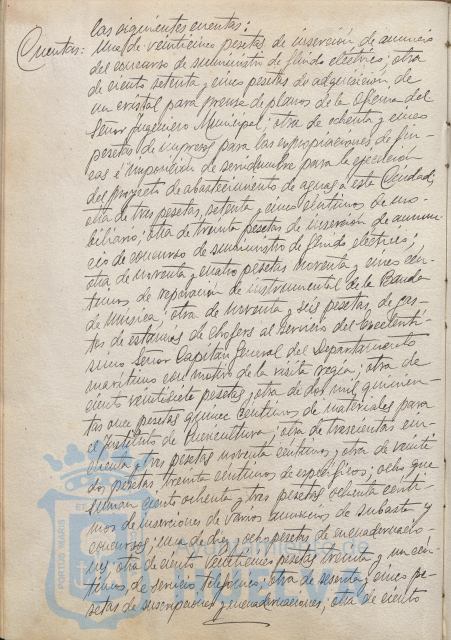 las siguientes cuentas:
Cuentas: Una de veinticinco pesetas de inserción de anuncio
del concurso de suministro de flúido eléctrico; otra
de ciento setenta y cinco pesetas de adquisición de
un cristal para prensa de planos de la Oficina del
Señor Ingeniero Municipal; otra de ochenta y cinco
pesetas de impresos para las expropiaciones de fin-
cas é imposición de servidumbre para la ejecución
del proyecto de abastecimiento de aguas a esta Ciudad;
otra de tres pesetas, setenta y cinco céntimos de mo-
biliario; otra de treinta pesetas de inserción de anun-
cio de concurso de suministro de flúido eléctrico;
otra de noventa y cuatro pesetas noventa y cinco cén-
timos, de reparación de instrumental de la Banda
de Música; otra de noventa y seis pesetas, de gas-
tos de estancias de chofers al servicio del Excelentí-
simo Señor Capitán General del Departamento
marítimo con motivo de la visita regia; otra de
ciento veintisiete pesetas; otra de dos mil quinien-
tas once pesetas quince céntimos, de materiales para
el Instituto de Puericultura; otra de trescientas cin-
cuenta y tres pesetas noventa céntimos; otra de veinti
dos pesetas treinta céntimos de específicos; ocho que
suman ciento ochenta y tres pesetas ochenta cénti-
mos de inserciones de varios anuncios de subasta y
concursos; una de diez y ocho pesetas de encuadernacio-
nes; otra de ciento veintinueve pesetas treinta y un cén-
timos, de servicio telefónico; otra de sesenta y cinco pe-
setas de suscripciones y encuadernaciones; otra de ciento
Ayuntamiento de
PORTUS MARIS